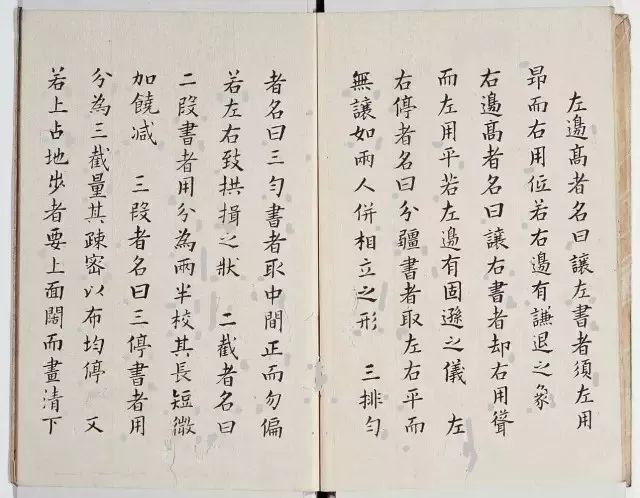 左邊高者名曰讓左書者須左用
昂而右用低若右邊有謙退之象
右邊高者名曰讓右書者却右用聳
而左用平若左邊有固遜之儀　左
右停者名曰分疆書者取左右平而
無讓如兩人併相立之形　三排勻
者名曰三勻書者取中間正而勿偏
若左右致拱揖之狀　二截者名曰
二段書者用分為兩半校其長短微
加饒減　三段者名曰三停書者用
分為三截量其疎密以布均停　又
若上占地步者要上面闊而畫清下